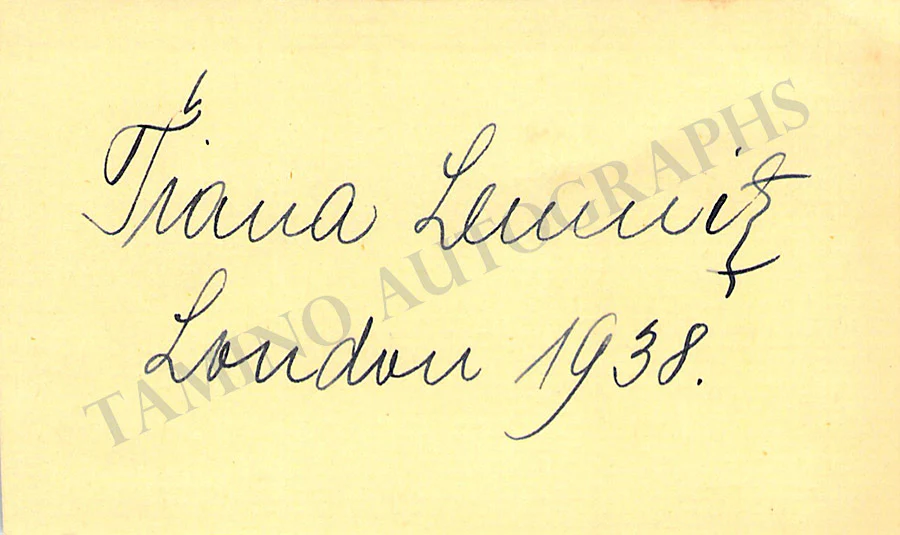 Tiana Lemnitz
London 1938.
TAMINO AUTOGRAPHS